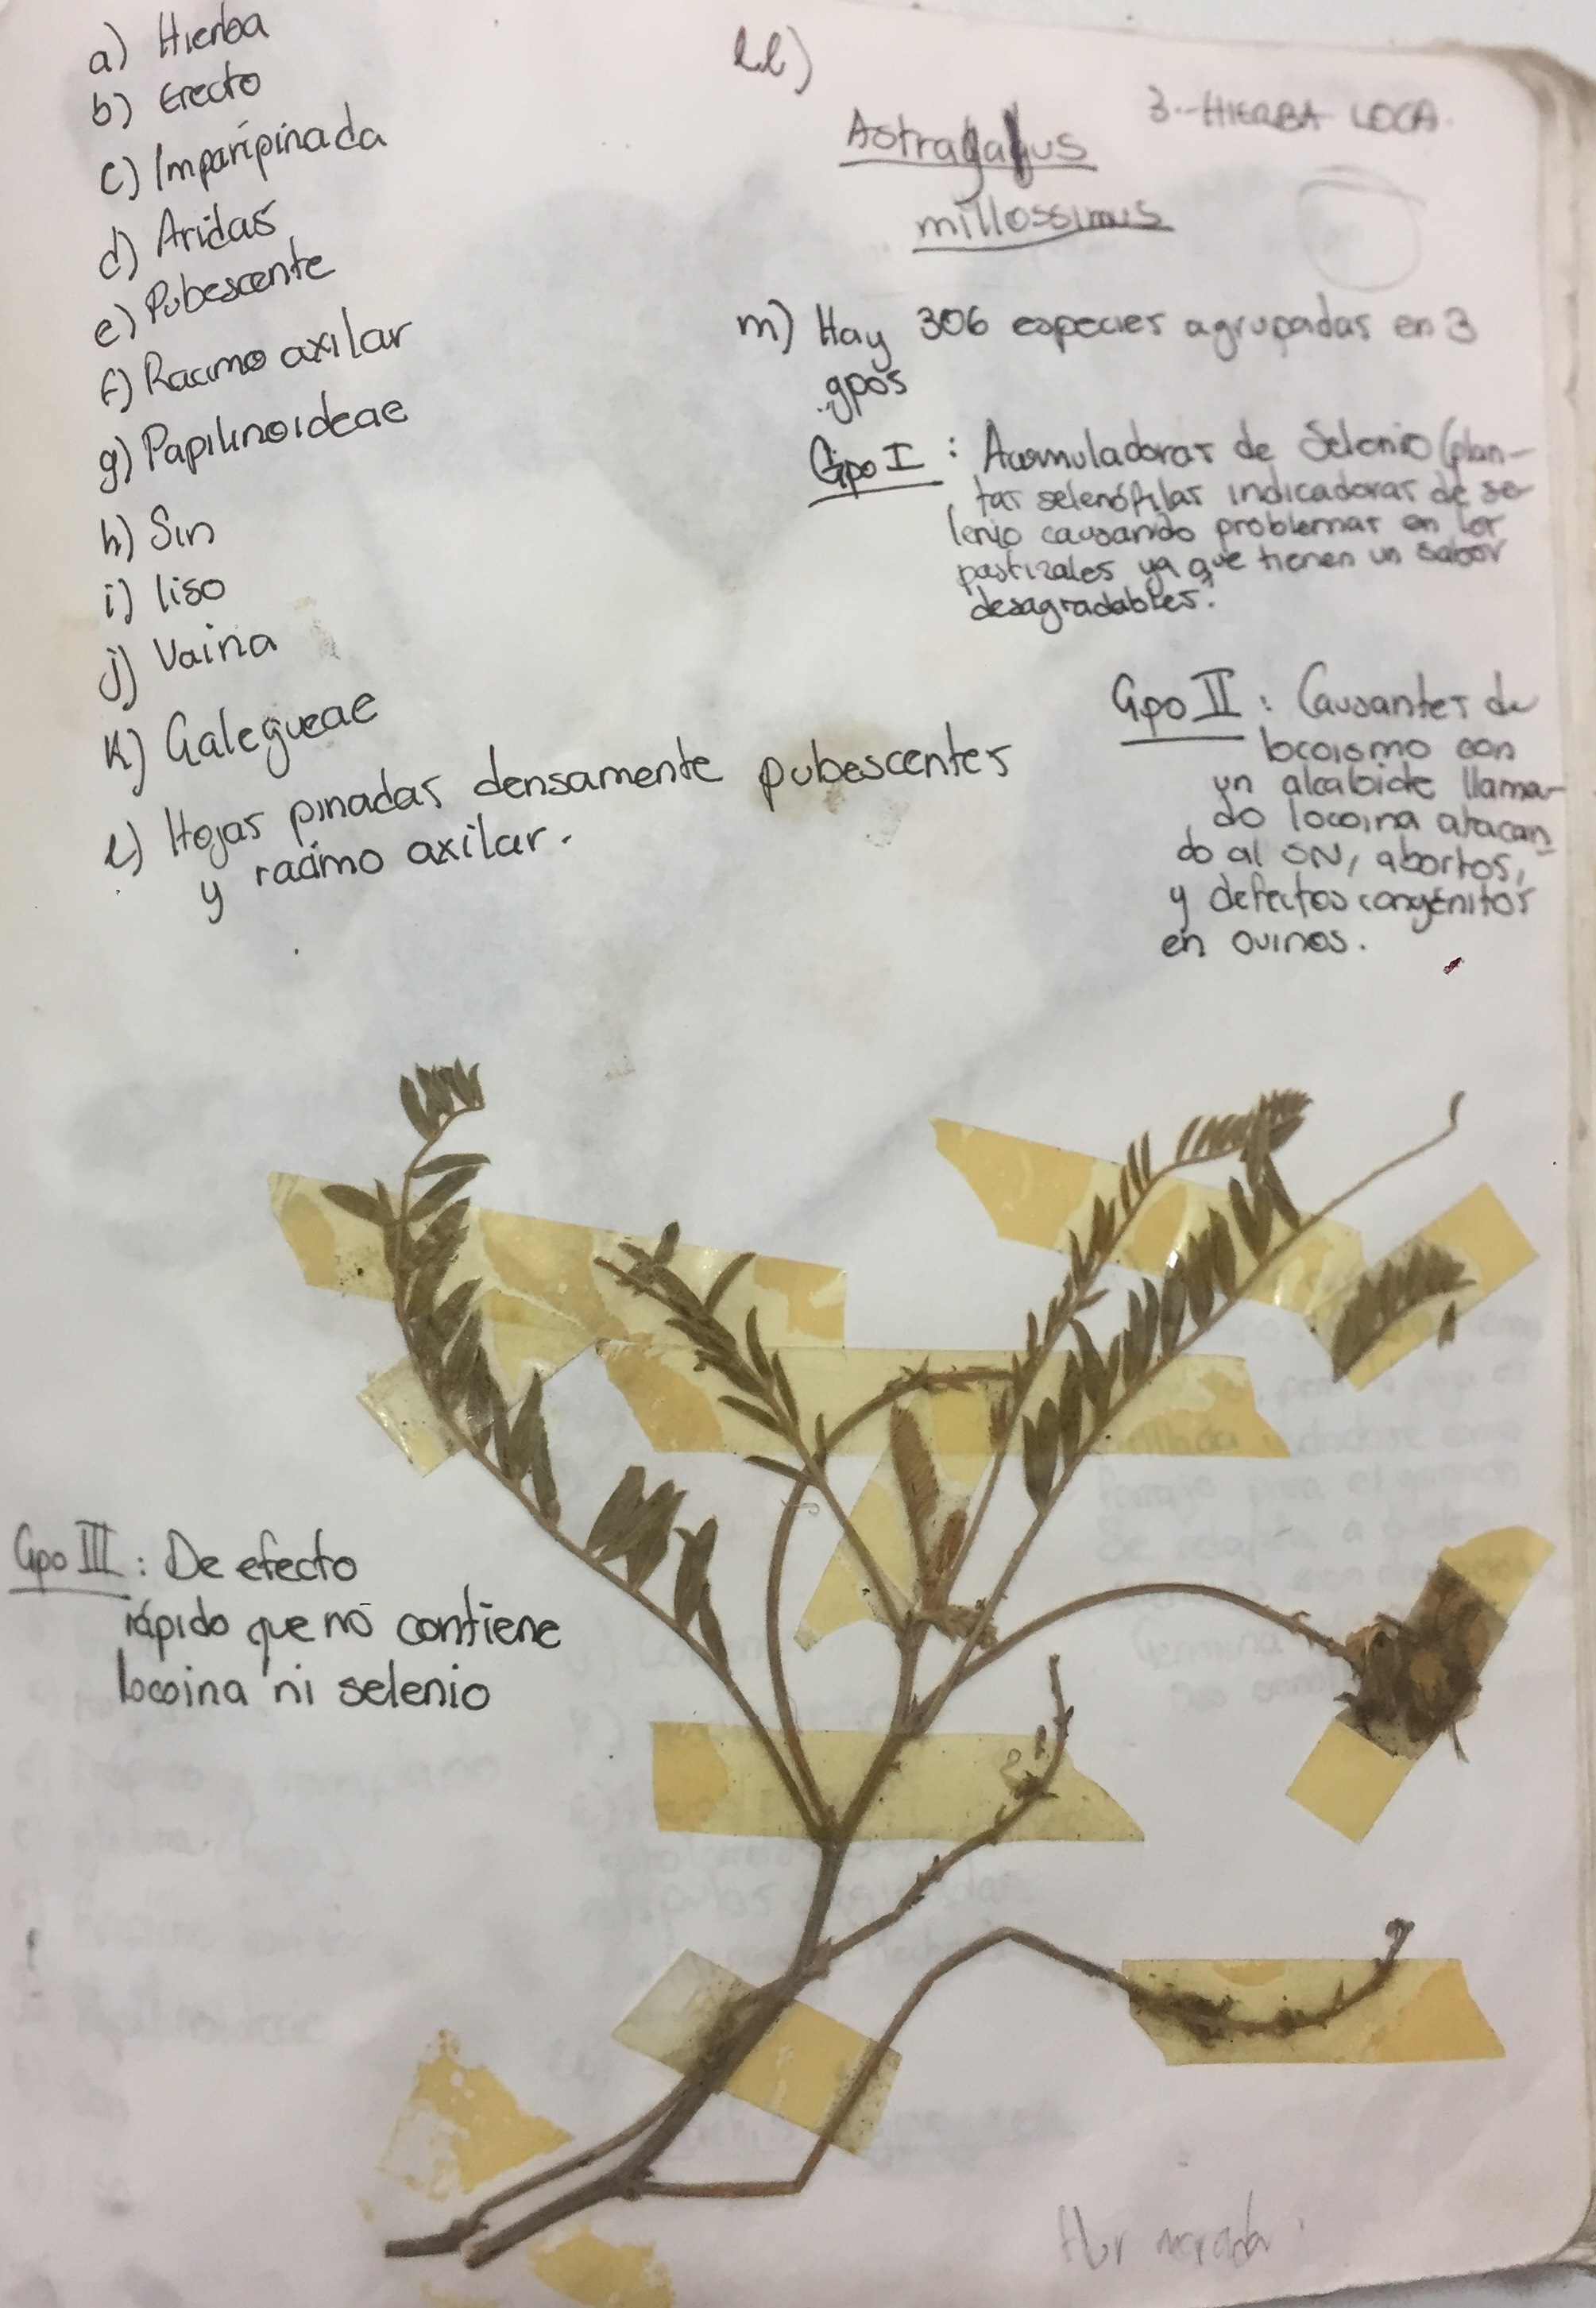 a) Hierba
b) Erecto
c) Imparipinada
d) Aridas
e) Pubescente
f) Racimo axilar
g) Papilinoideae
h) Sin
i) liso
j) Vaina
k) Galegueae
l) Hojas pinadas densamente pubescentes
y racimo axilar.
ll)
3.-HIERBA LOCA.
Astragalus
millossimus
m) Hay 306 especies agrupadas en 3
gpos
Gpo I : Acumuladoras de Selenio (plan-
tas selenófilas indicadoras de se-
lenio causando problemas en los
pastizales ya que tienen un sabor
desagradables.
Gpo II : Causantes de
locoismo con
un alcaloide llama-
do locoina atacan-
do al SN, abortos,
y defectos congénitos
en ovinos.
Gpo III : De efecto
rápido que no contiene
locoina ni selenio
flor morada